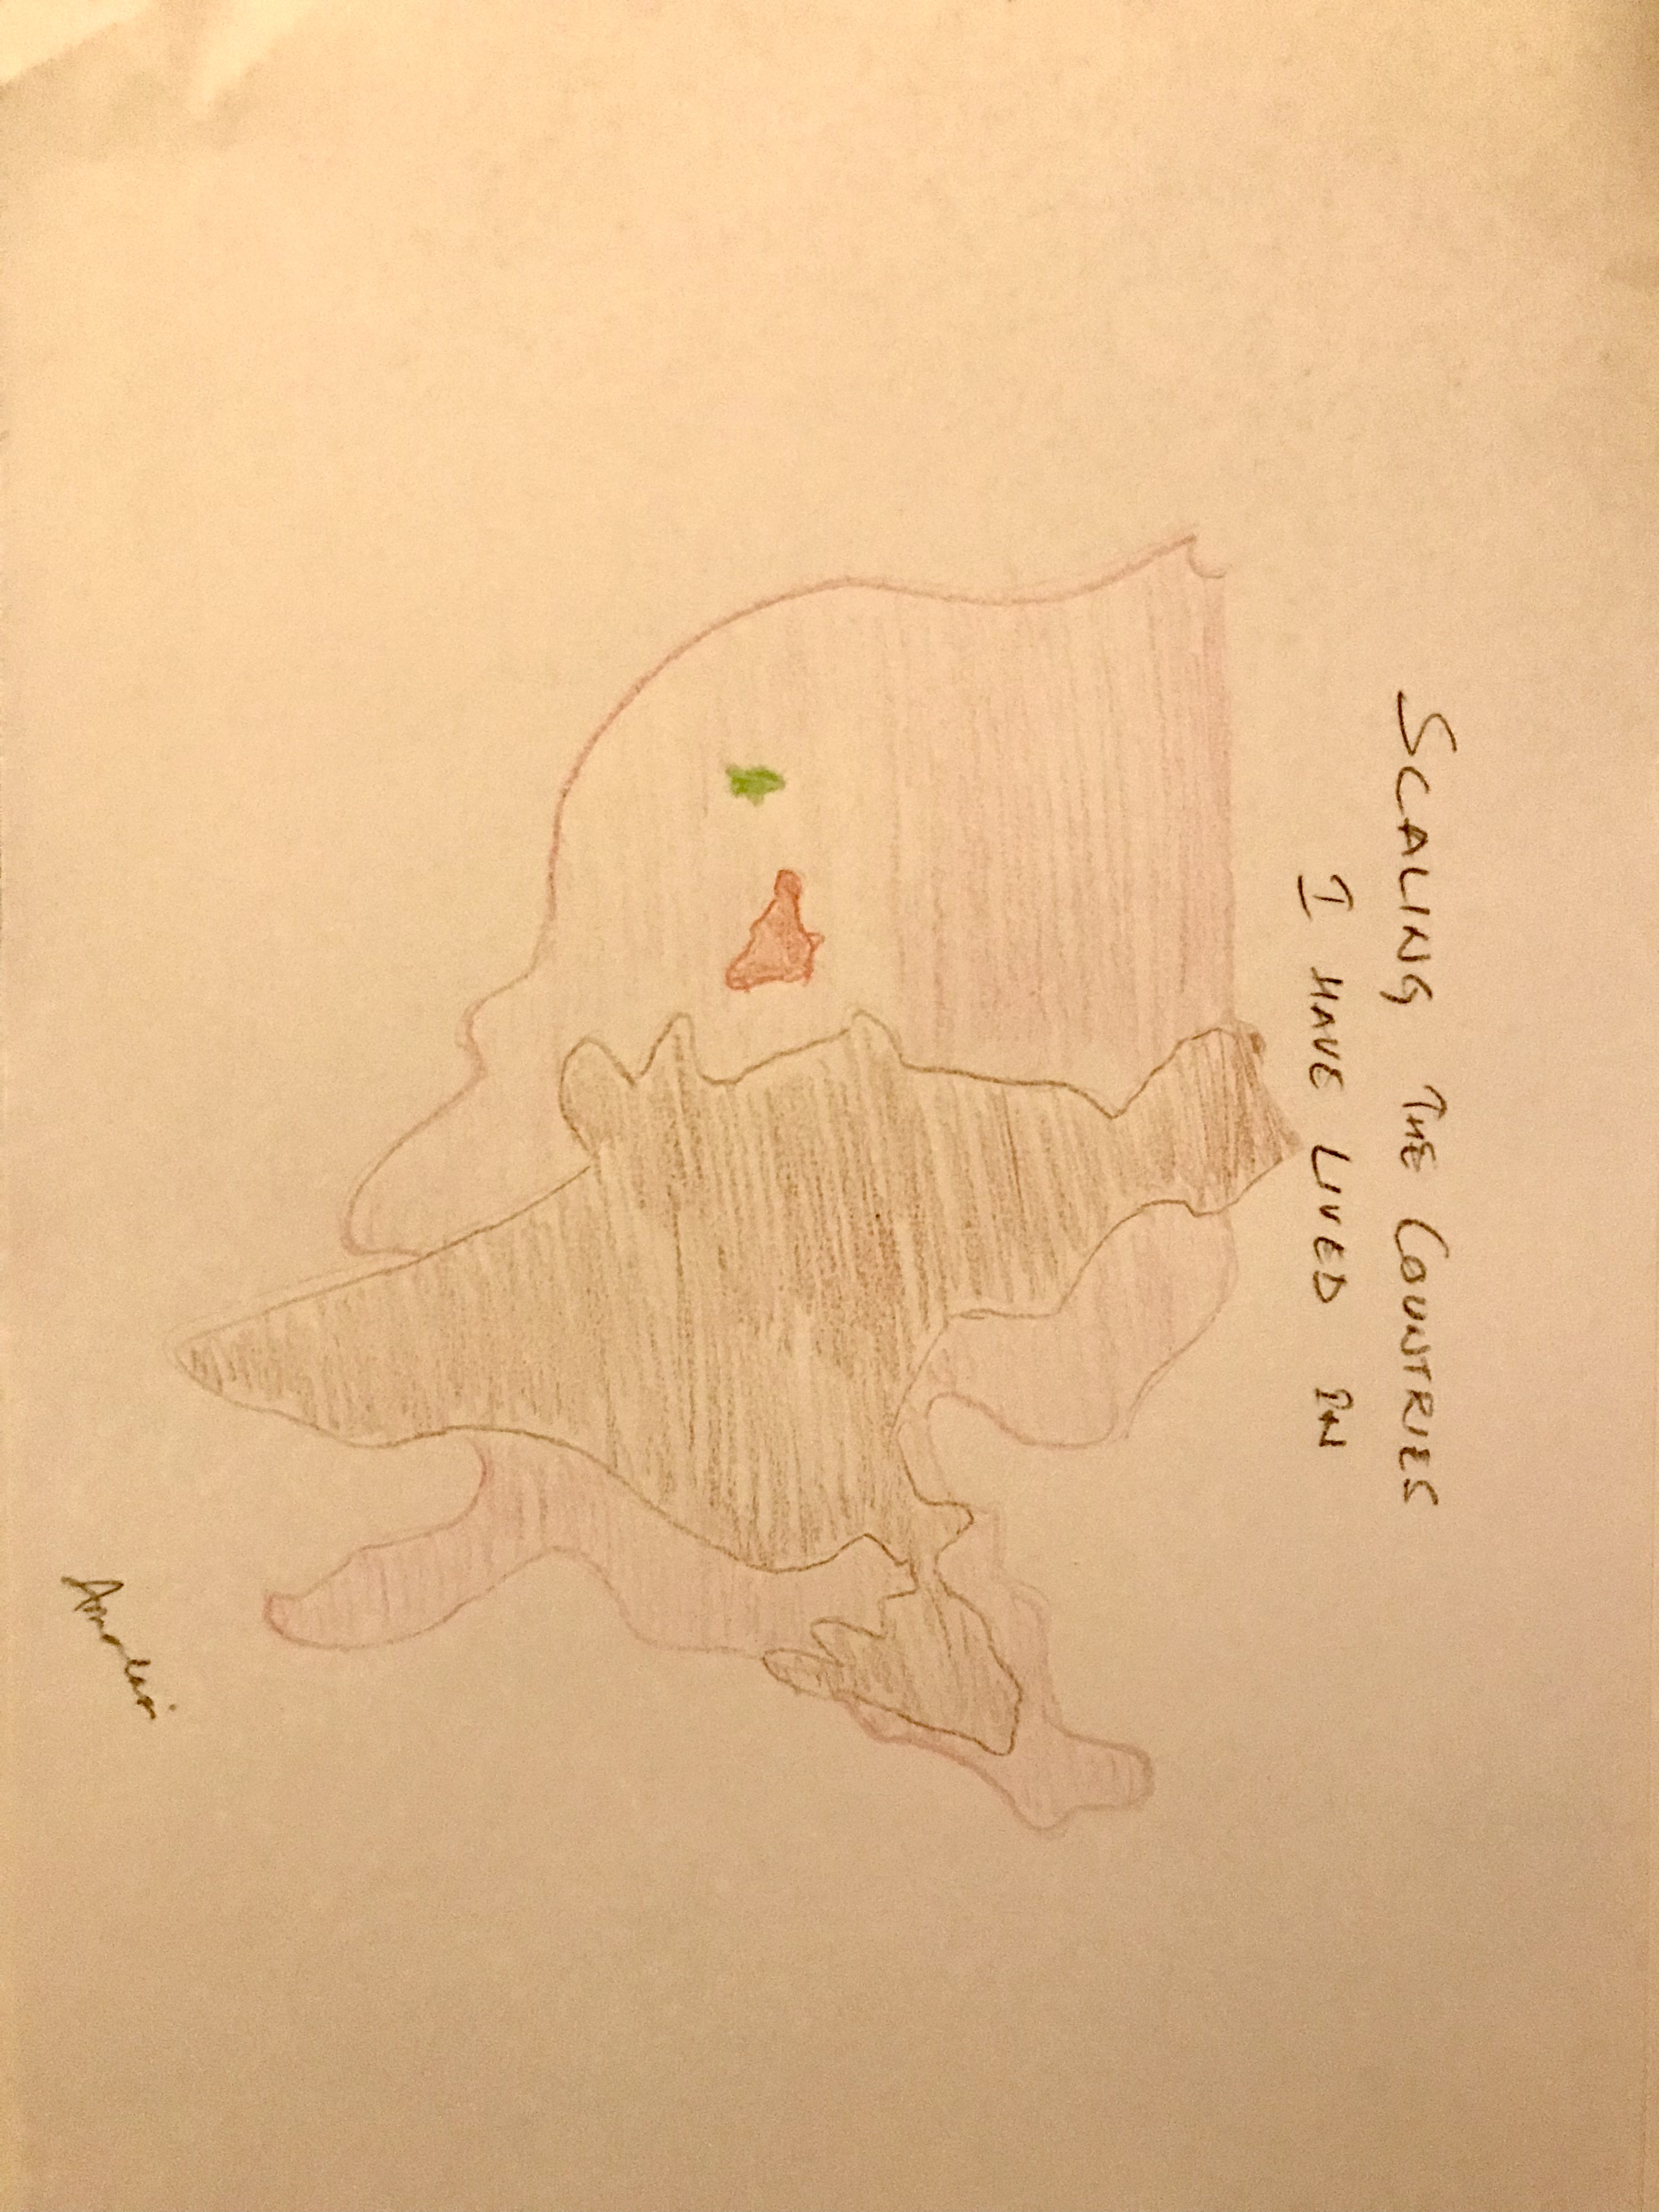 SCALING THE COUNTRIES
I HAVE LIVED IN